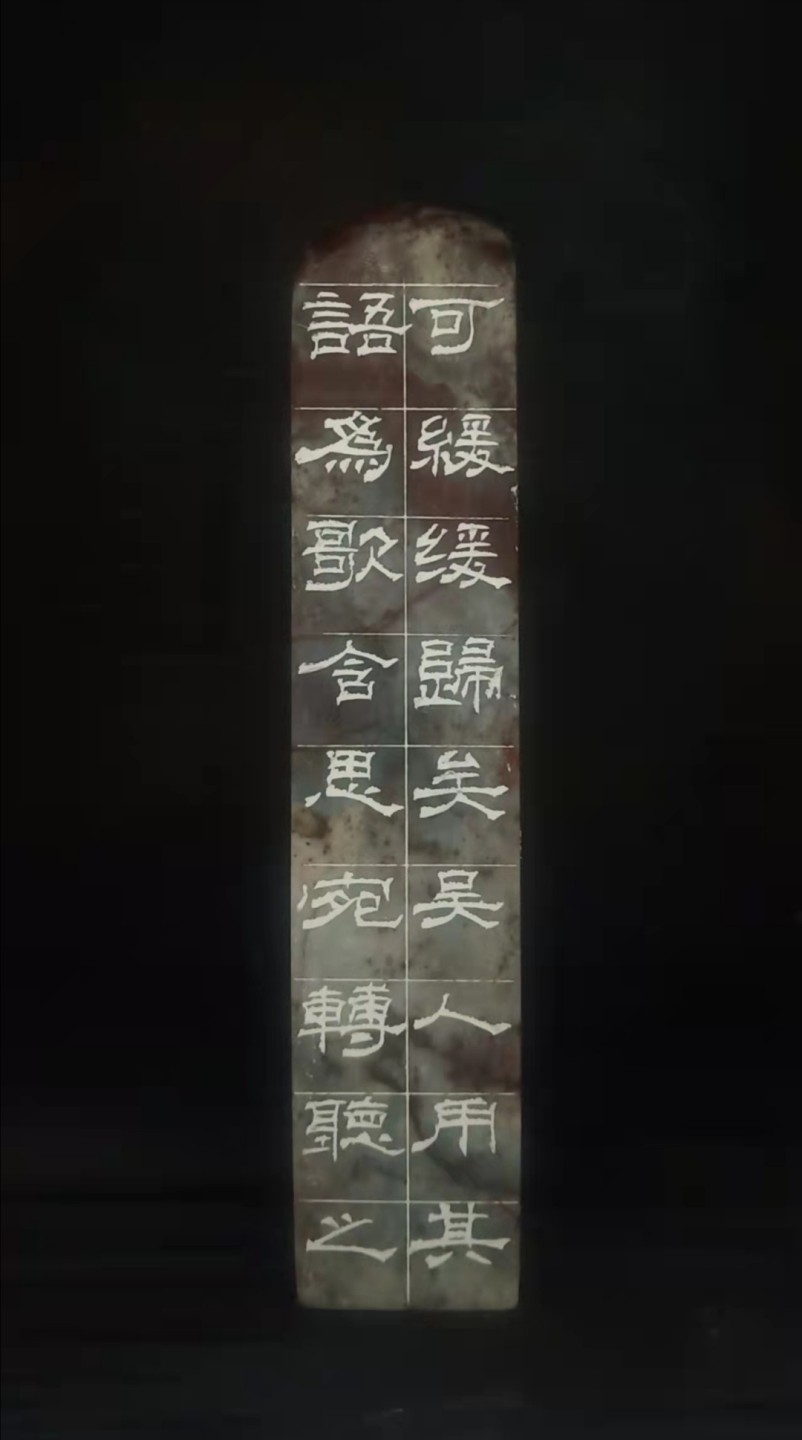 可緩緩歸矣吴人用其
語爲歌含思宛轉聽之